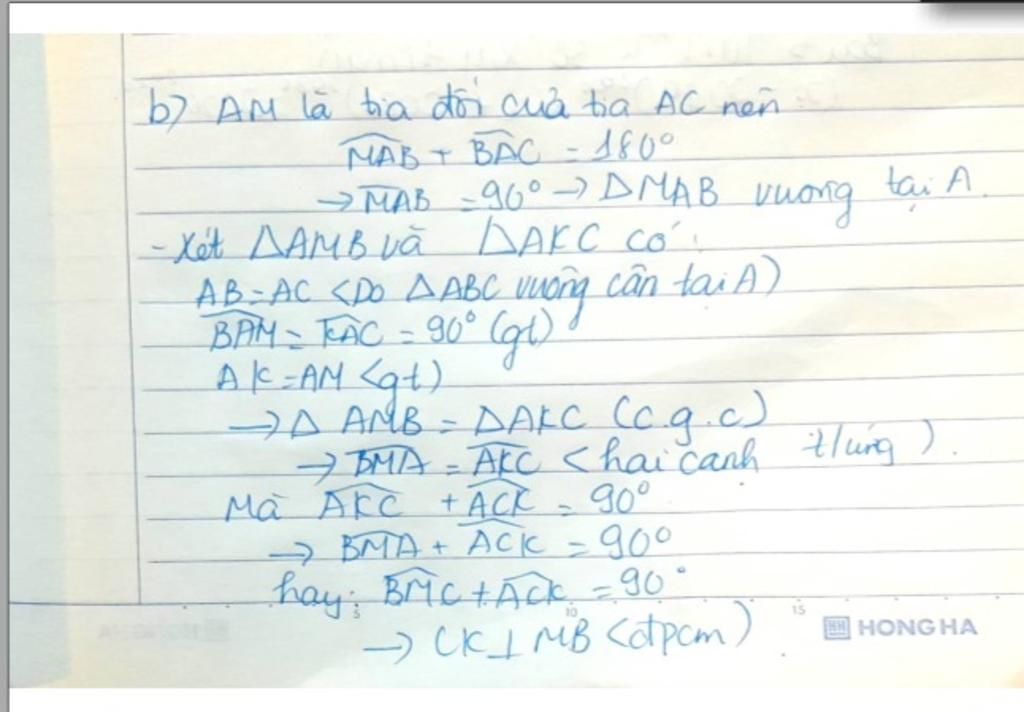 b) AM là tia đối của tia AC nên
MAB + BAC = 180°
→ MAB = 90° → △MAB vuông tại A.
- Xét △AMB và △AKC có:
AB = AC <Do △ABC vuông cân tại A)
BAM = KAC = 90° (gt)
AK = AM <gt)
→ △ AMB = △AKC (c.g.c)
→ BMA = AKC < hai cạnh t/ứng).
Mà AKC + ACK = 90°
→ BMA + ACK = 90°
hay: BMC + ACK = 90°
5 10 15 HH HONG HA
→ CK ⊥ MB <đpcm)